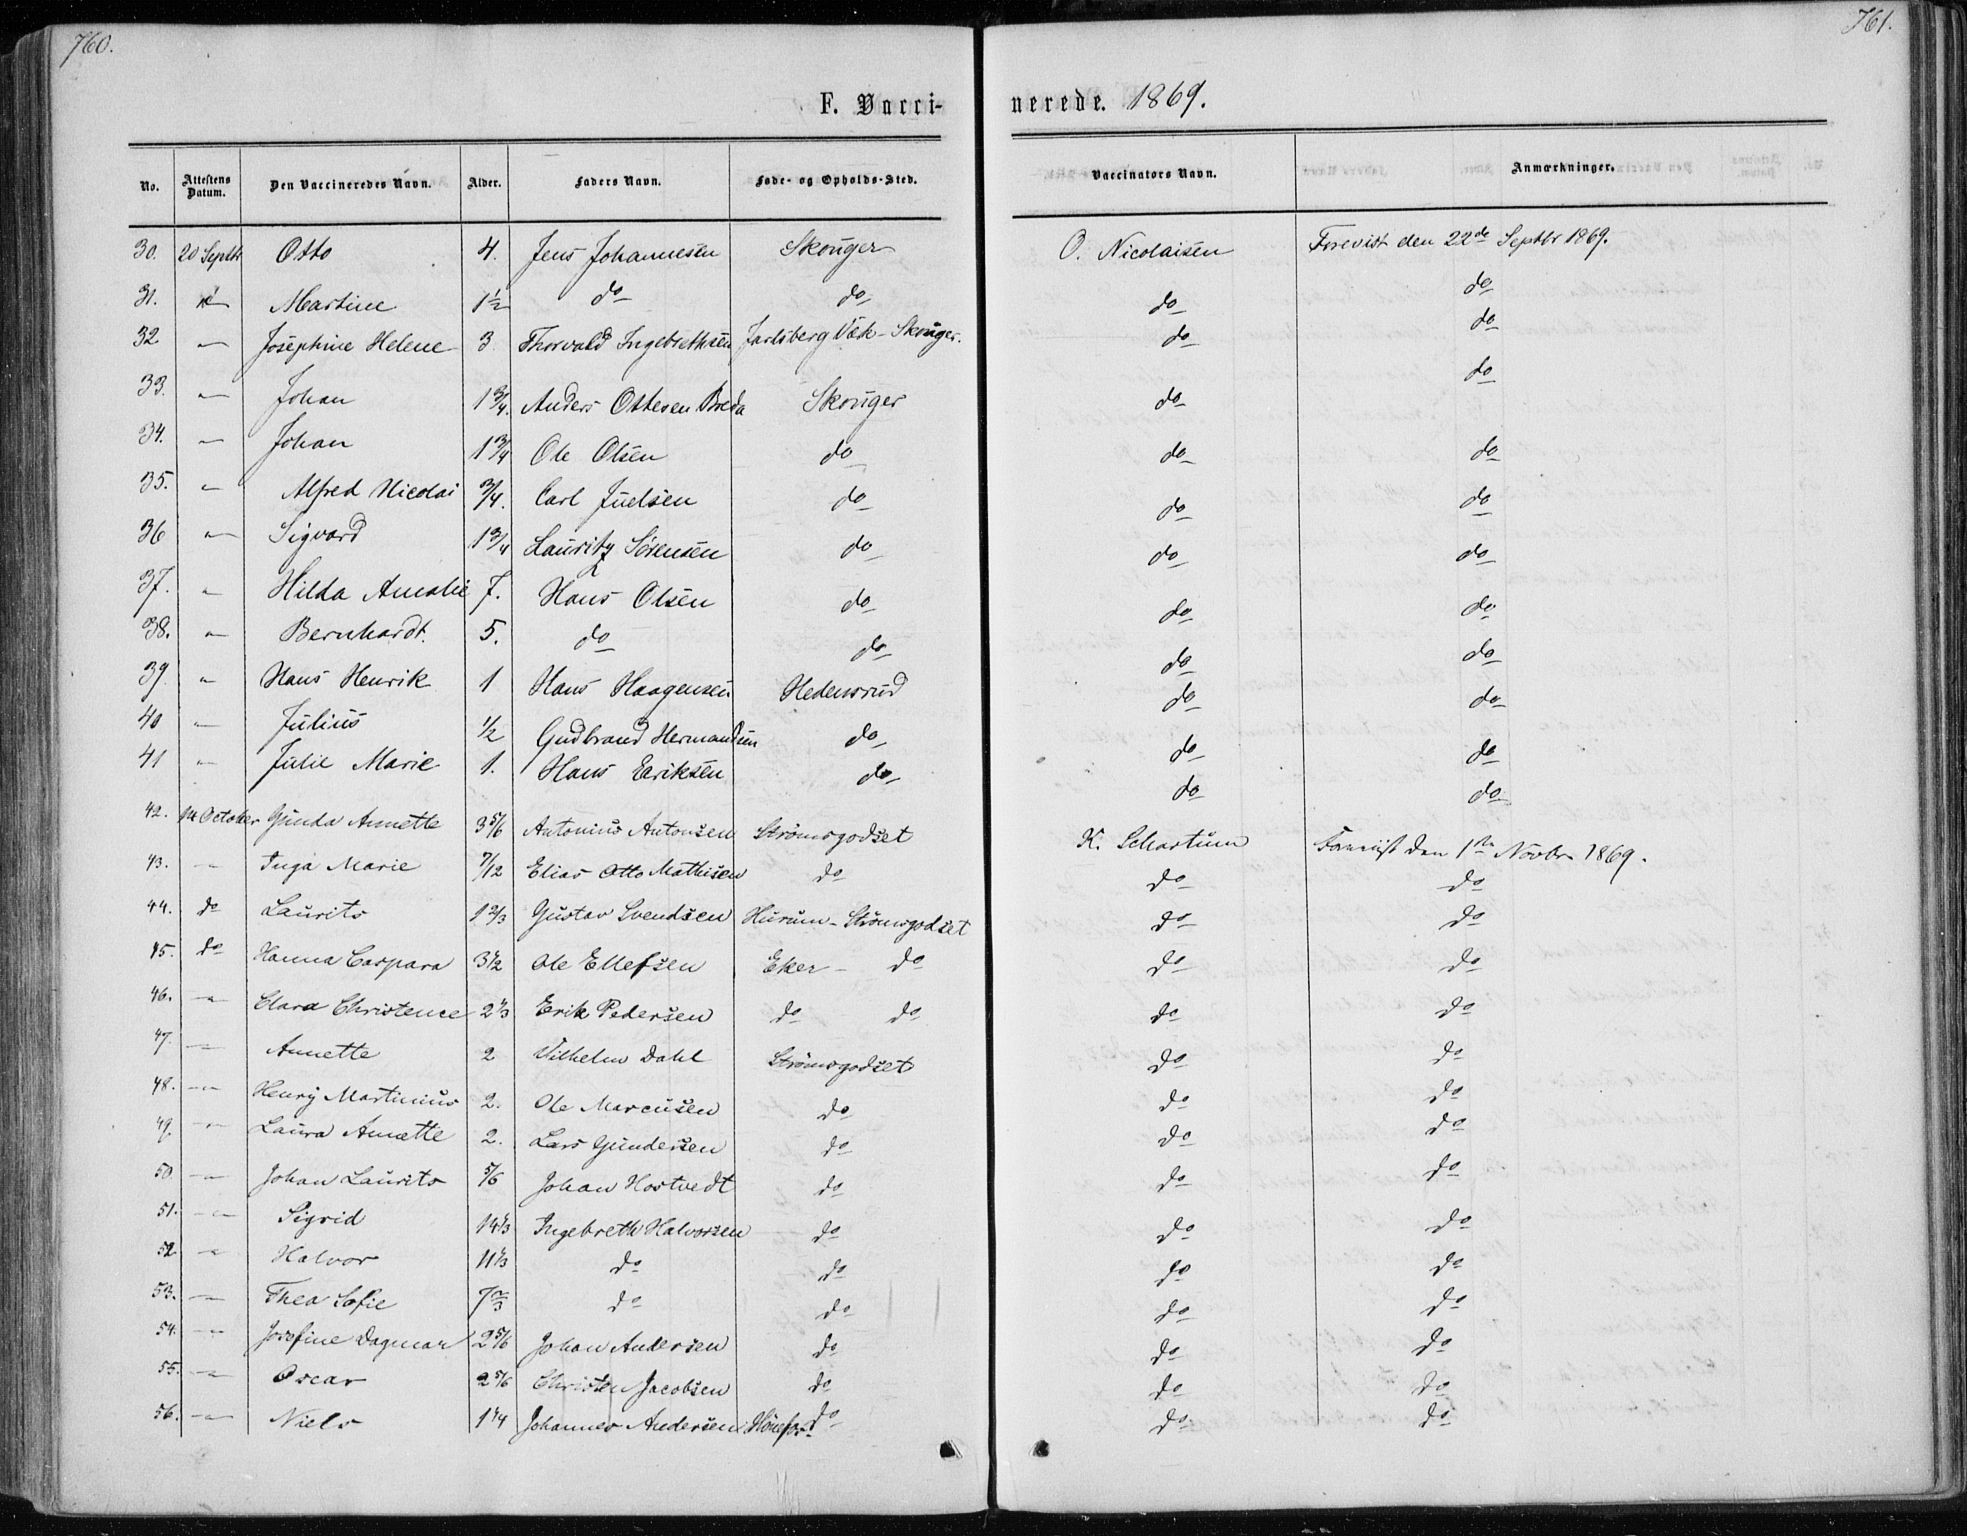 760.
761.
F. Vacci-
nerede. 1869.
No. Attestens Datum. Den Vaccineredes Navn. Alder. Faders Navn. Føde- og Opholds-Sted. Vaccinators Navn. Anmærkninger.
30. 20 Septbr Otto 4. Jens Johannesen Skouger O. Nicolaisen Forevist den 22de Septbr 1869.
31. Martine 1 1/2 do do do do
32 " Josephine Helene 3 Thorvald Ingebrethsen Jarlsberg Væk - Skouger. do do
33. " Johan 1 3/4. Anders Ottesen Breda Skouger do do
34. " Johan 1 3/4 Ole Olsen do do do
35. " Alfred Nicolai 3/4. Carl Juelsen do do do
36 " Sigvard 1 3/4 Lauritz Sørensen do do do
37. " Hilda Amalie 7. Hans Olsen do do do
38. " Bernhardt. 5. do do do do
39. " Hans Henrik 1 Hans Haagensen Hedensrud do do
40 " Julius 1/2 Gudbrand Hermandsen do do do
41 " Julie Marie 1. Hans Eeriksen do do do
42. 14 October Gunda Annette 3 5/6 Antonius Antonsen Strømsgodset K. Schartum Forevist den 1ste Novbr 1869.
43. " Inga Marie 7/12 Elias Otto Mathisen do do do
44. do Laurits 1 2/3 Gustav Svendsen Hurum - Strømsgodset do do
45. do Hanna Caspara 3 1/2 Ole Ellefsen Eker - do do do
46. " Clara Christence 2 1/3 Erik Pedersen do do do do
47. " Annette 2 Vilhelm Dahl Strømsgodset do do
48. " Henry Martinius 2. Ole Marcusen do do do
49. " Laura Annette 2. Lars Gundersen do do do
50. " Johan Laurits 5/6 Johan Hostvedt do do do
51. " Sigrid 14 1/3 Ingebreth Halvorsen do do do
52 " Halvor 11 1/3 do do do do
53. " Thea Sofie 7 2/3 do do do do
54. " Josefine Dagmar 2 5/6 Johan Andersen do do do
55. " Oscar 2 5/6 Christen Jacobsen do do do
56. " Niels 1 1/4 Johannes Andersen Hønefos - do do do